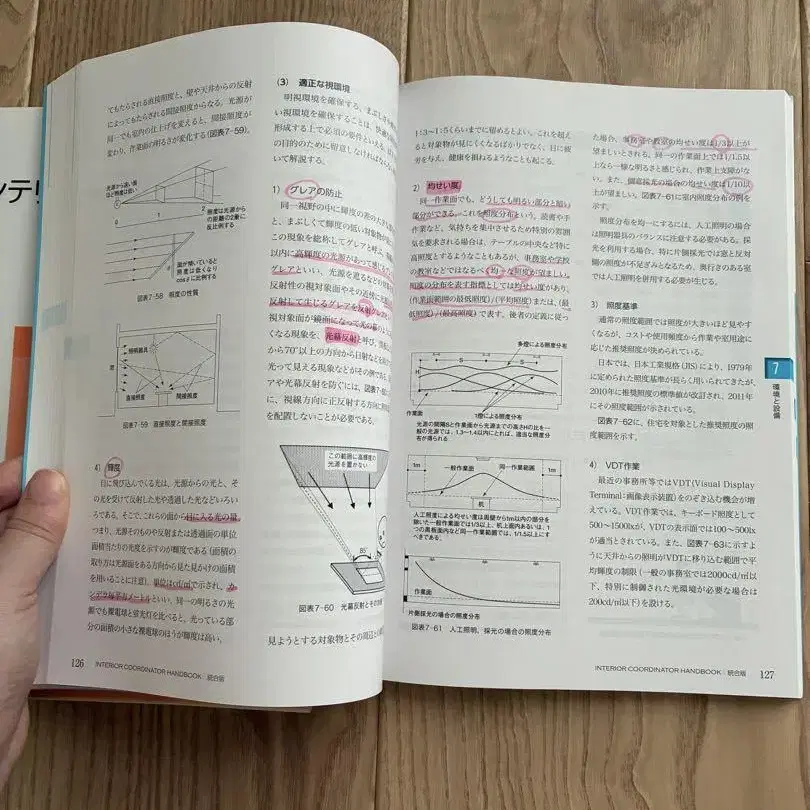 てもたらされる直接照度と、壁や天井からの反射
によってもたらされる間接照度からなる。光源が
同一でも室内の仕上げを変えると、間接照度が
変わり、作業面の明るさが変化する（図表7-59）。
光源から遠い程
照度は光源から
の距離の2乗に
反比例する
0 1 2 3
面が傾いていると
照度は低くなり
に比例する
図表7-58 照度の性質
照明器具
直接照度
間接照度
図表7-59 直接照度と間接照度
4）輝度
目に飛び込んでくる光は、光源からの光と、そ
の光を受けて反射した光や透過した光などいろい
ろである。そこで、これらの面から目に入る光の量、
つまり、光源そのものや反射または透過面の単位
面積当たりの光度を示すのが輝度である（面積の
取り方は光源面をある方向から見た見かけの面積
を用いることに注意）。単位はcd/㎡で示され、カ
ンデラ毎平方メートルといい、同一の明るさの光
源でも電球と蛍光灯を比べると、光っている部
分の面積の小さな電球のほうが輝度は高い。
126 INTERIOR COORDINATOR HANDBOOK 統合版
(3) 適正な視環境
明視環境を確保する、まぶしさ
い視環境を確保することは、快適
形成する上で必須の要件といえる。以下
の目的のために留意しなければなら
いて解説する。
1）グレアの防止
同一視野の中に輝度の差の大き
と、まぶしくて輝度の低い対象物が
この現象を総称してグレアと呼ぶ。
以内に高輝度の光源があって感じる
グレアといい、光源を遮るなどの
反射性の視対象面やその近傍に
反射して生じるグレアを反射グレア
視対象面が鏡面になって光の幕
くなる現象を、光幕反射と呼び、
から70°以上の方向から日射など
光って見える現象などがその例で
アや光幕反射を防ぐには、図表7-60
に、視線方向に正反射する方向に照明
を配置しないことが必要である。
この範囲に高輝度の
光源を置かない
85°
図表7-60 光幕反射とその
見ようとする対象物とその周辺と
1:3〜1:5くらいまでに留めるとよい。これを超え
ると対象物が見にくくなるばかりでなく、目に疲
労を与え、健康を損ねるようなことも起こる。
2）均せい度
同一作業面でも、どうしても明るい部分と暗い
部分ができる。これを照度分布という。読書や手
作業など、気持ちを集中させるため特別の雰囲
気を要求する場合は、テーブルの中央など特に
高照度とするようなこともあるが、事務室や学校
の教室などではなるべく均一な照度が望ましい。
照度の分布を表す指標としては均せい度があり、
（作業面範囲の最低照度）/（平均照度）または、（最
低照度）/（最高照度）で表す。後者の定義に従っ
多灯による照度分布
S S
H
作業面
1灯による照度分布
光源の間隔Sと作業面から光源までの高さHの比を一
般の光源では、1.3〜1.4以内にとれば、適当な照度分
布が得られる
1m 一般作業面 同一作業範囲 1m
机
人工照明による均せい度は周壁から1m以内の部分を
除いた一般作業面では1/3以上、机上面内あるいは、1
つの黒板面内など同一作業範囲では、1/1.5以上にす
べきである。
作業面
片側採光の場合の照度分布
図表7-61 人工照明、採光の場合の照度分布
た場合、事務室や教室の均せい度は1/3以上が
望ましいとされる。同一の作業面上では1/1.5以
上なら一様な明るさと感じられ、作業上支障がな
い。また、側窓採光の場合の均せい度は1/10以
上が望ましい。図表7-61に室内照度分布の例を
示す。
照度分布を均一にするには、人工照明の場合
は照明器具のバランスに注意する必要がある。採
光を利用する場合、特に片側採光では窓と反対
側の照度が不足ぎみとなるため、奥行きのある室
では人工照明を併用する必要が生じる。
3）照度基準
通常の照度範囲では照度が大きいほど見やす
くなるが、コストや使用頻度から作業や室用途に
応じた推奨照度が決められている。
日本では、日本工業規格（JIS）により、1979年
に定められた照度基準が長らく用いられてきたが、
2010年に推奨照度の標準値が改訂され、2011年
にその照度範囲が示されている。
図表7-62に、住宅を対象とした推奨照度の照
度範囲を示す。
4）VDT作業
最近の事務所等ではVDT（Visual Display
Terminal：画像表示装置）をのぞき込む機会が増
えている。VDT作業では、キーボード照度として
500〜1500lxが、VDTの表示面では100〜500lx
が適当とされている。また、図表7-63に示すよ
うに天井からの照明がVDTに移り込む範囲で平
均輝度の制限（一般の事務室では2000cd/㎡以
下、特別に制御された光環境が必要な場合は
200cd/㎡以下）を設ける。
7
環境と設備
INTERIOR COORDINATOR HANDBOOK 統合版 127
ンテリ